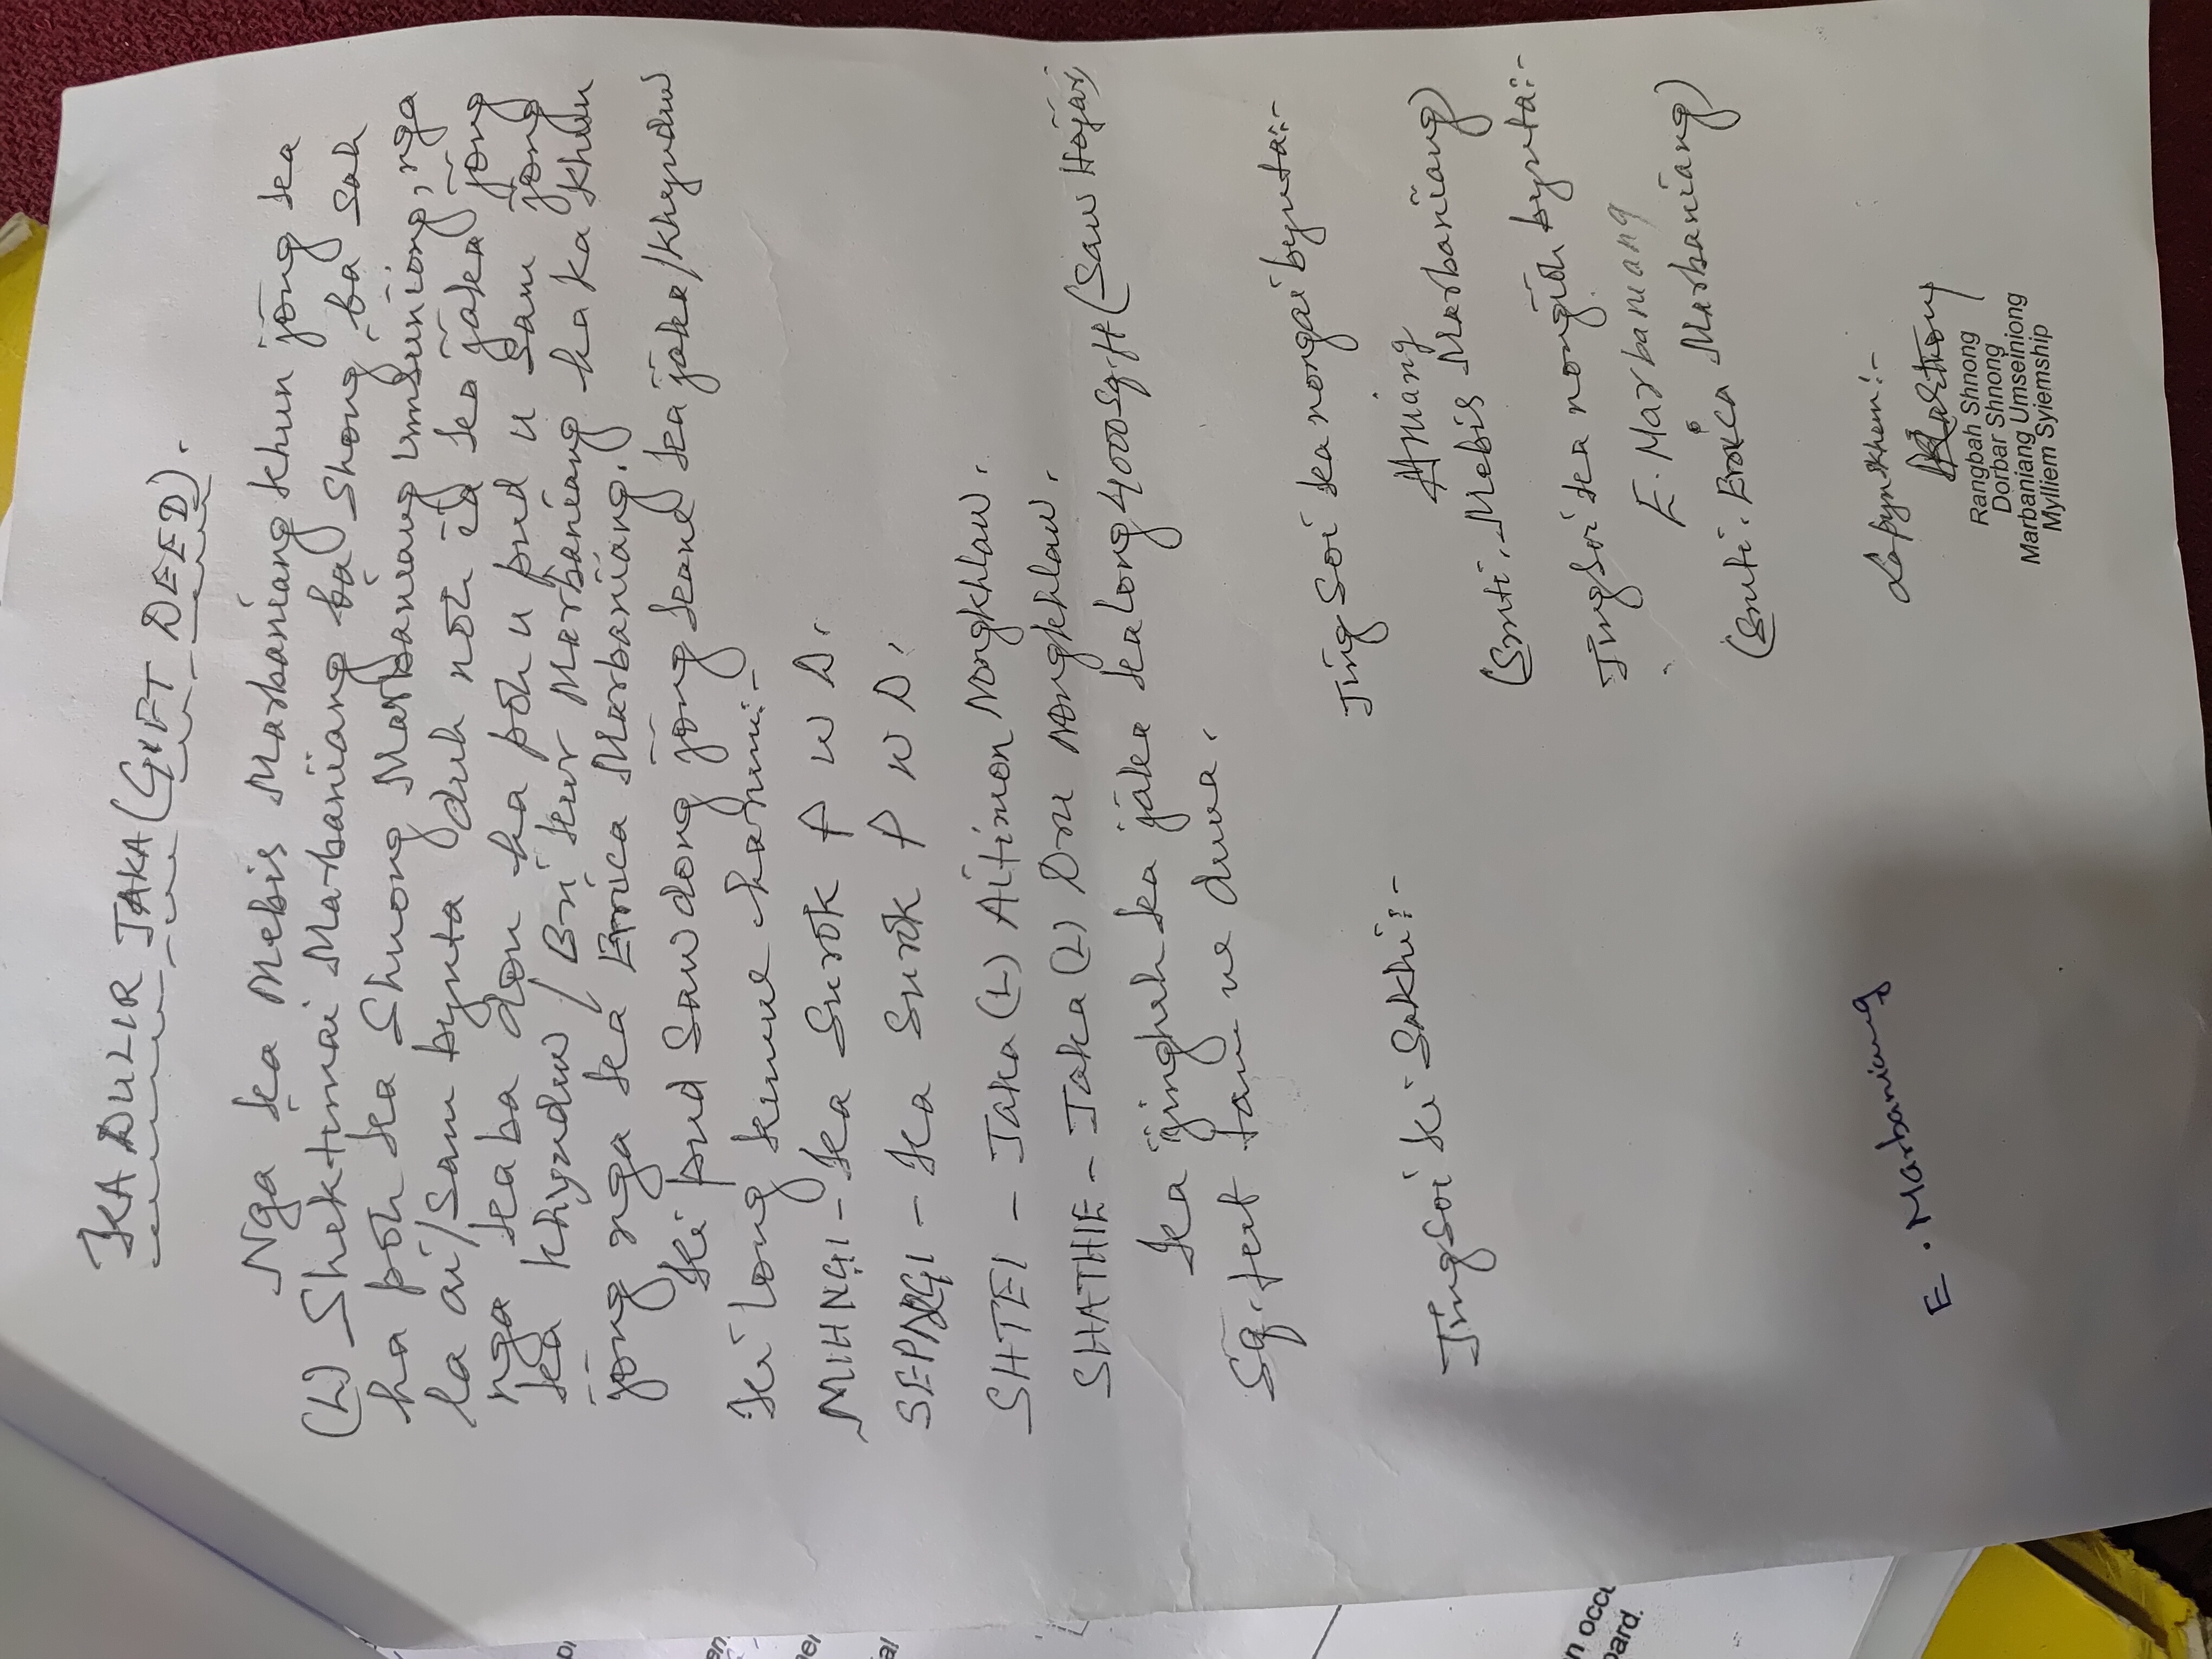 KA DULIR JAKA (GIFT DEED).
Nga ka Mebis Marbaniang khun jong ka
(L) Shektimai Marbaniang ba shong ba sah
ha poh ka Shnong Marbaniang Umseiniong, nga
la ai/sam bynta duh noh ia ka jaka jong
nga kaba don ha poh u pud u sam jong
ka khyndew / Bri kur Marbaniang ha ka khun
jong nga ka Erica Marbaniang.
Ki pud sawdong jong kane ka jaka/khyndew
ki long kumne harum:-
MIHNGI - Ka Surok P W D.
SEPNGI - Ka Surok P W D.
SHTEI - Jaka (L) Altimon Nongkhlaw.
SHATHIE - Jaka (L) Dru Nongkhlaw.
Ka jingheh ka jaka ka long 4000 sq.ft (Saw Hajar)
Sq. feet tam ne duna.
Jingsoi ka nongai bynta:-
(Smti. Mebis Marbaniang)
Jingsoi ki Sakhi:-
Jingsoi ka nongioh bynta:-
E. Marbaniang
(Smti. Erica Marbaniang)
E. Marbaniang
La pynkhein:-
Rangbah Shnong
Dorbar Shnong
Marbaniang Umseiniong
Mylliem Syiemship